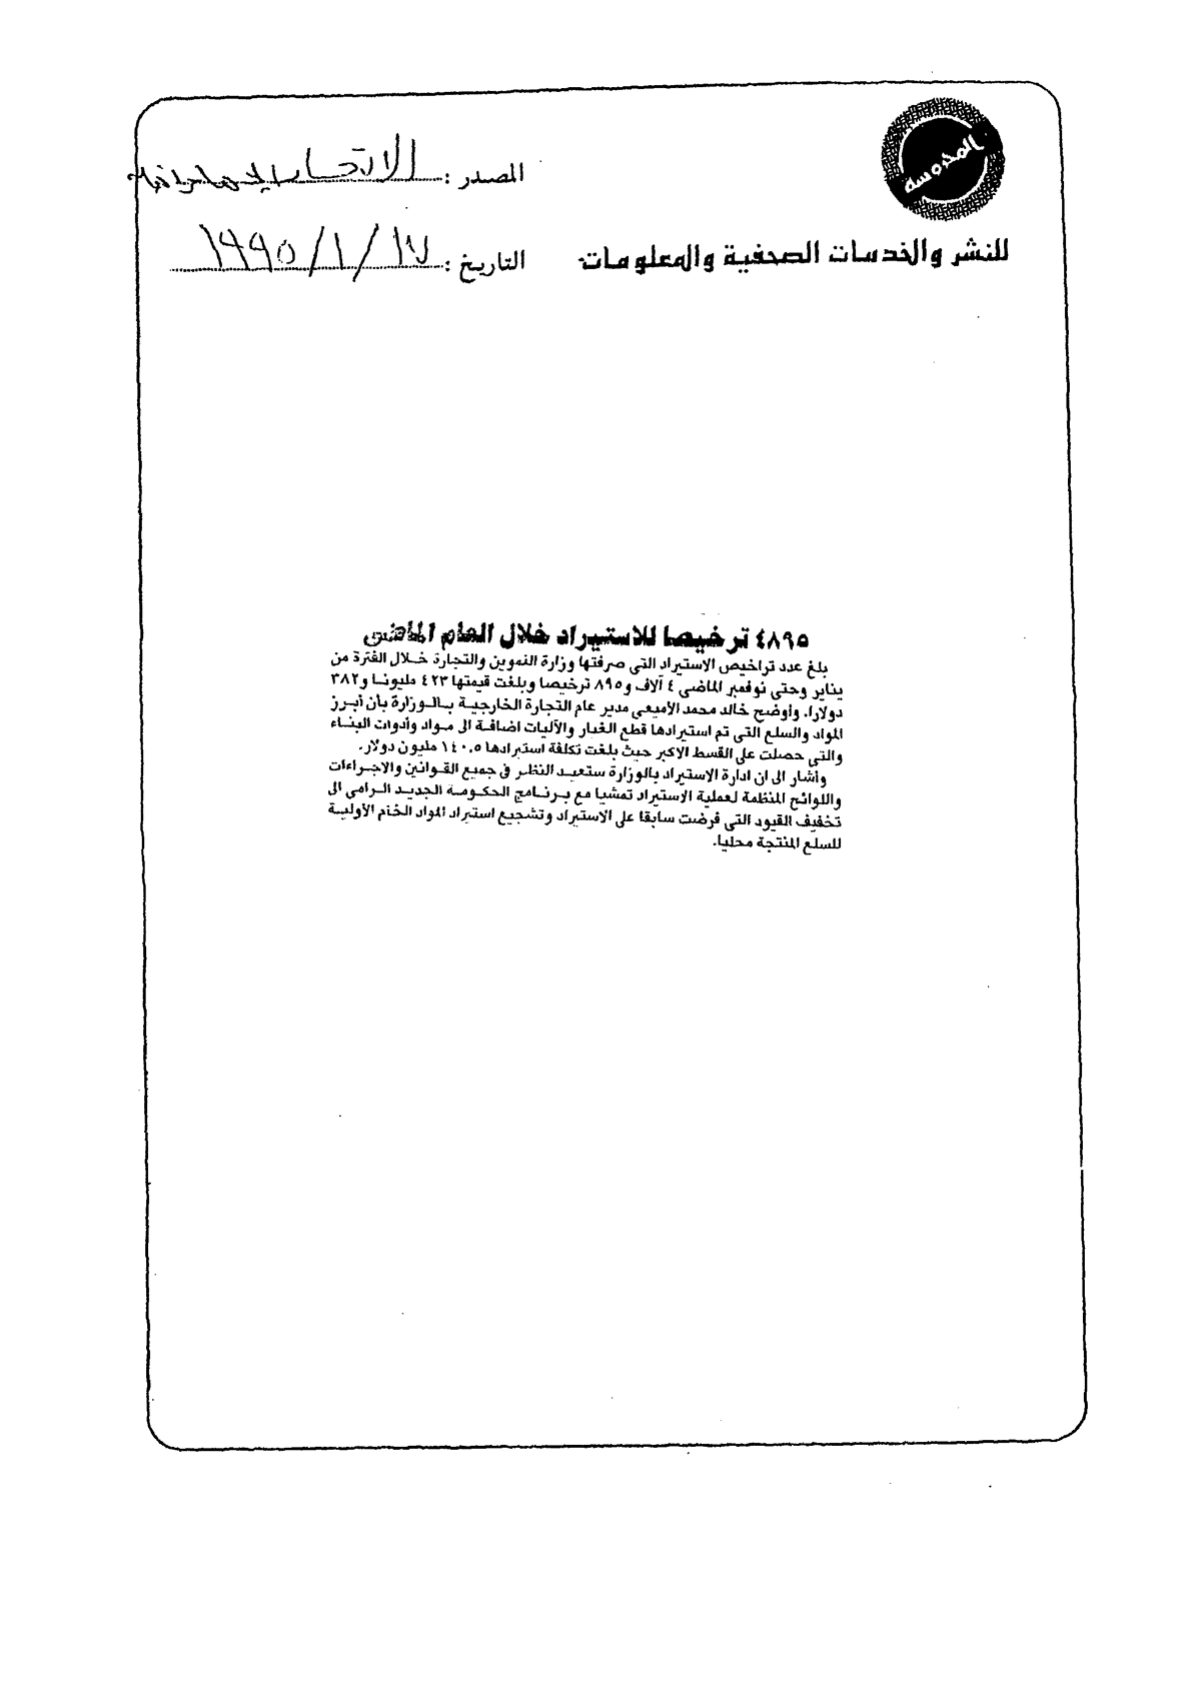 المحروسة
للنشر والخدسات الصحفية والمعلومات
المصدر :
التاريخ : ١٧/١/١٩٩٥
٤٨٩٥ ترخيصا للاستيراد خلال العام الماضى
بلغ عدد تراخيص الاستيراد التى صرفتها وزارة التموين والتجارة خلال الفترة من
يناير وحتى نوفمبر الماضى ٤ آلاف و٨٩٥ ترخيصا وبلغت قيمتها ٤٢٣ مليونا و٣٨٢
دولارا. وأوضح خالد محمد الأميعى مدير عام التجارة الخارجية بالوزارة بأن أبرز
المواد والسلع التى تم استيرادها قطع الغيار والآليات اضافة الى مواد وأدوات البناء
والتى حصلت على القسط الاكبر حيث بلغت تكلفة استيرادها ١٤٠,٥ مليون دولار.
وأشار الى ان ادارة الاستيراد بالوزارة ستعيد النظر فى جميع القوانين والاجراءات
واللوائح المنظمة لعملية الاستيراد تمشيا مع برنامج الحكومة الجديد الرامى الى
تخفيف القيود التى فرضت سابقا على الاستيراد وتشجيع استيراد المواد الخام الأولية
للسلع المنتجة محليا.